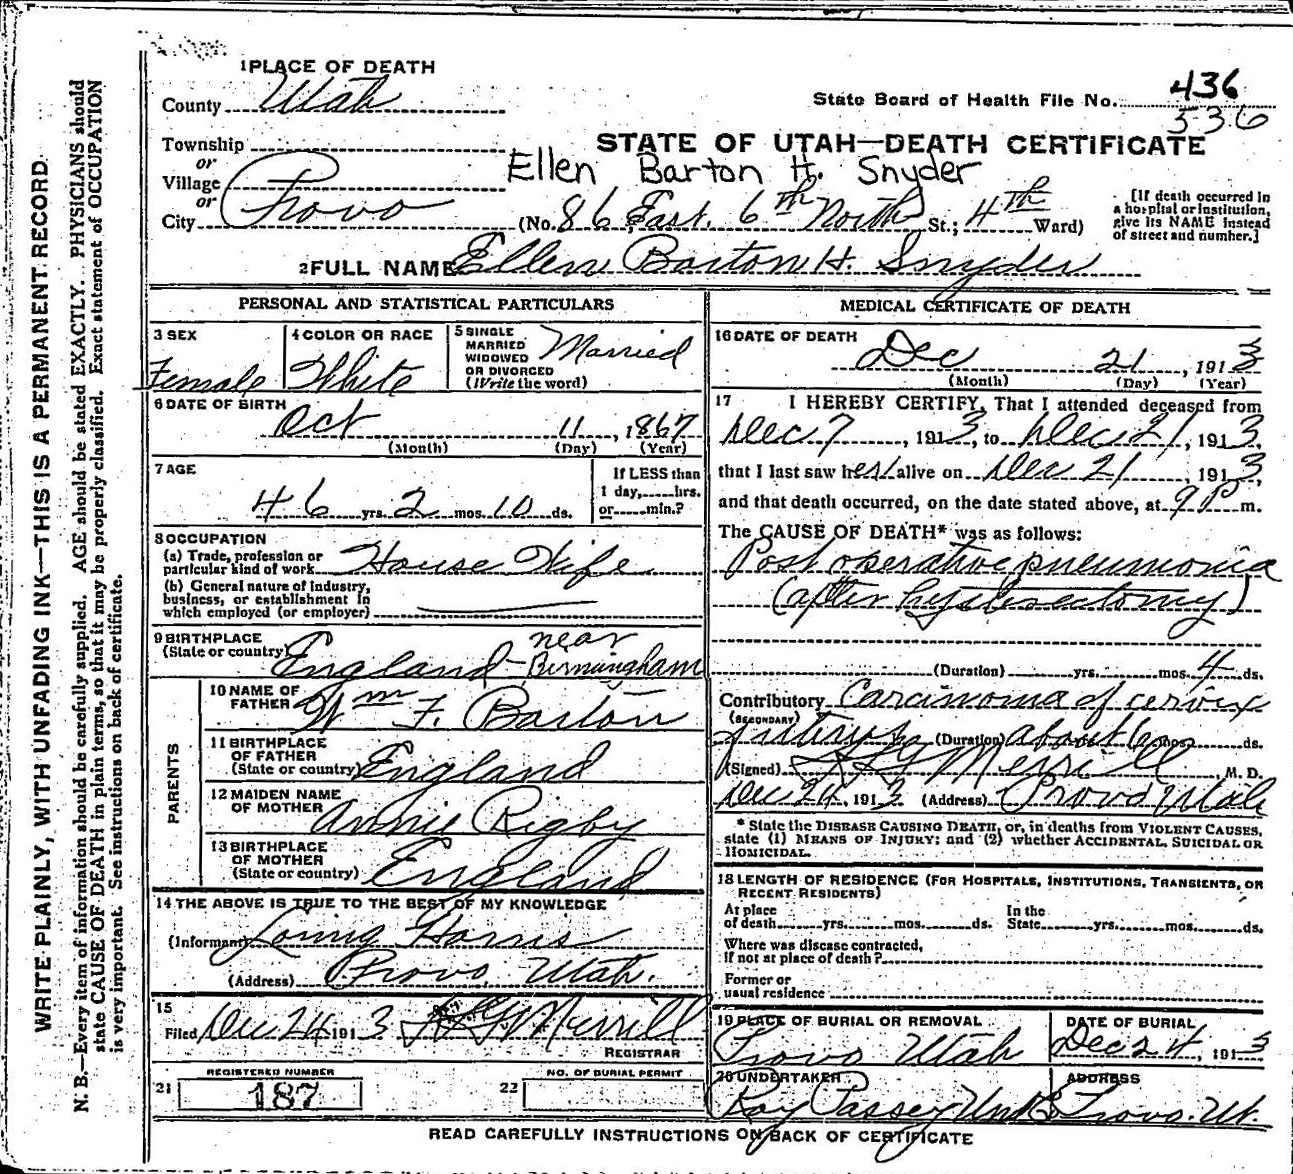 WRITE PLAINLY, WITH UNFADING INK—THIS IS A PERMANENT RECORD.
N. B.—Every item of information should be carefully supplied. AGE should be stated EXACTLY. PHYSICIANS should
state CAUSE OF DEATH in plain terms, so that it may be properly classified. Exact statement of OCCUPATION
is very important. See instructions on back of certificate.
1 PLACE OF DEATH
County Utah
State Board of Health File No. 436
536
Township
or
Village
or
City Provo
STATE OF UTAH—DEATH CERTIFICATE
Ellen Barton H. Snyder
(No. 86 East. 6th North St.; 4th Ward)
[If death occurred in
a hospital or institution,
give its NAME instead
of street and number.]
2 FULL NAME Ellen Barton H. Snyder
PERSONAL AND STATISTICAL PARTICULARS
3 SEX
Female
4 COLOR OR RACE
White
5 SINGLE
MARRIED
WIDOWED
OR DIVORCED
(Write the word)
Married
6 DATE OF BIRTH
Oct 11, 1867
(Month) (Day) (Year)
7 AGE
46 yrs. 2 mos. 10 ds.
If LESS than
1 day,......hrs.
or......min.?
8 OCCUPATION
(a) Trade, profession or
particular kind of work House Wife
(b) General nature of industry,
business, or establishment in
which employed (or employer)
9 BIRTHPLACE
(State or country) England - near Birmingham
PARENTS
10 NAME OF
FATHER Wm F. Barton
11 BIRTHPLACE
OF FATHER
(State or country) England
12 MAIDEN NAME
OF MOTHER Annie Rigby
13 BIRTHPLACE
OF MOTHER
(State or country) England
14 THE ABOVE IS TRUE TO THE BEST OF MY KNOWLEDGE
(Informant) Harris
(Address) Provo, Utah.
15
Filed Dec 24 1913 Merrill
REGISTRAR
REGISTERED NUMBER
21 187
NO. OF BURIAL PERMIT
22
MEDICAL CERTIFICATE OF DEATH
16 DATE OF DEATH
Dec 21, 1913
(Month) (Day) (Year)
17 I HEREBY CERTIFY, That I attended deceased from
Dec 7, 1913, to Dec 21, 1913,
that I last saw her alive on Dec 21, 1913,
and that death occurred, on the date stated above, at 9 P m.
The CAUSE OF DEATH* was as follows:
Post operative pneumonia
(after hysterectomy)
(Duration) yrs. mos. 4 ds.
Contributory Carcinoma of cervix
(SECONDARY)
uteri (Duration) about 6 mos ds.
(Signed) Merrill, M. D.
Dec 24, 1913 (Address) Provo Utah
* State the DISEASE CAUSING DEATH, or, in deaths from VIOLENT CAUSES,
state (1) MEANS OF INJURY; and (2) whether ACCIDENTAL, SUICIDAL OR
HOMICIDAL.
18 LENGTH OF RESIDENCE (FOR HOSPITALS, INSTITUTIONS, TRANSIENTS, OR
RECENT RESIDENTS)
At place
of death......yrs......mos......ds.
In the
State......yrs......mos......ds.
Where was disease contracted,
if not at place of death?
Former or
usual residence
19 PLACE OF BURIAL OR REMOVAL
Provo Utah
DATE OF BURIAL
Dec 24, 1913
20 UNDERTAKER
Ray Passey Und Co
ADDRESS
Provo. Ut.
READ CAREFULLY INSTRUCTIONS ON BACK OF CERTIFICATE